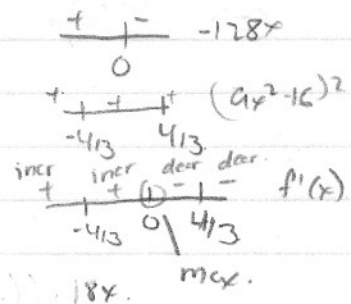 + - -128x
0
+ + + (9x²-16)²
-4/3 4/3
incr incr decr decr.
+ + - - f'(x)
-4/3 0 4/3
max.
18x.